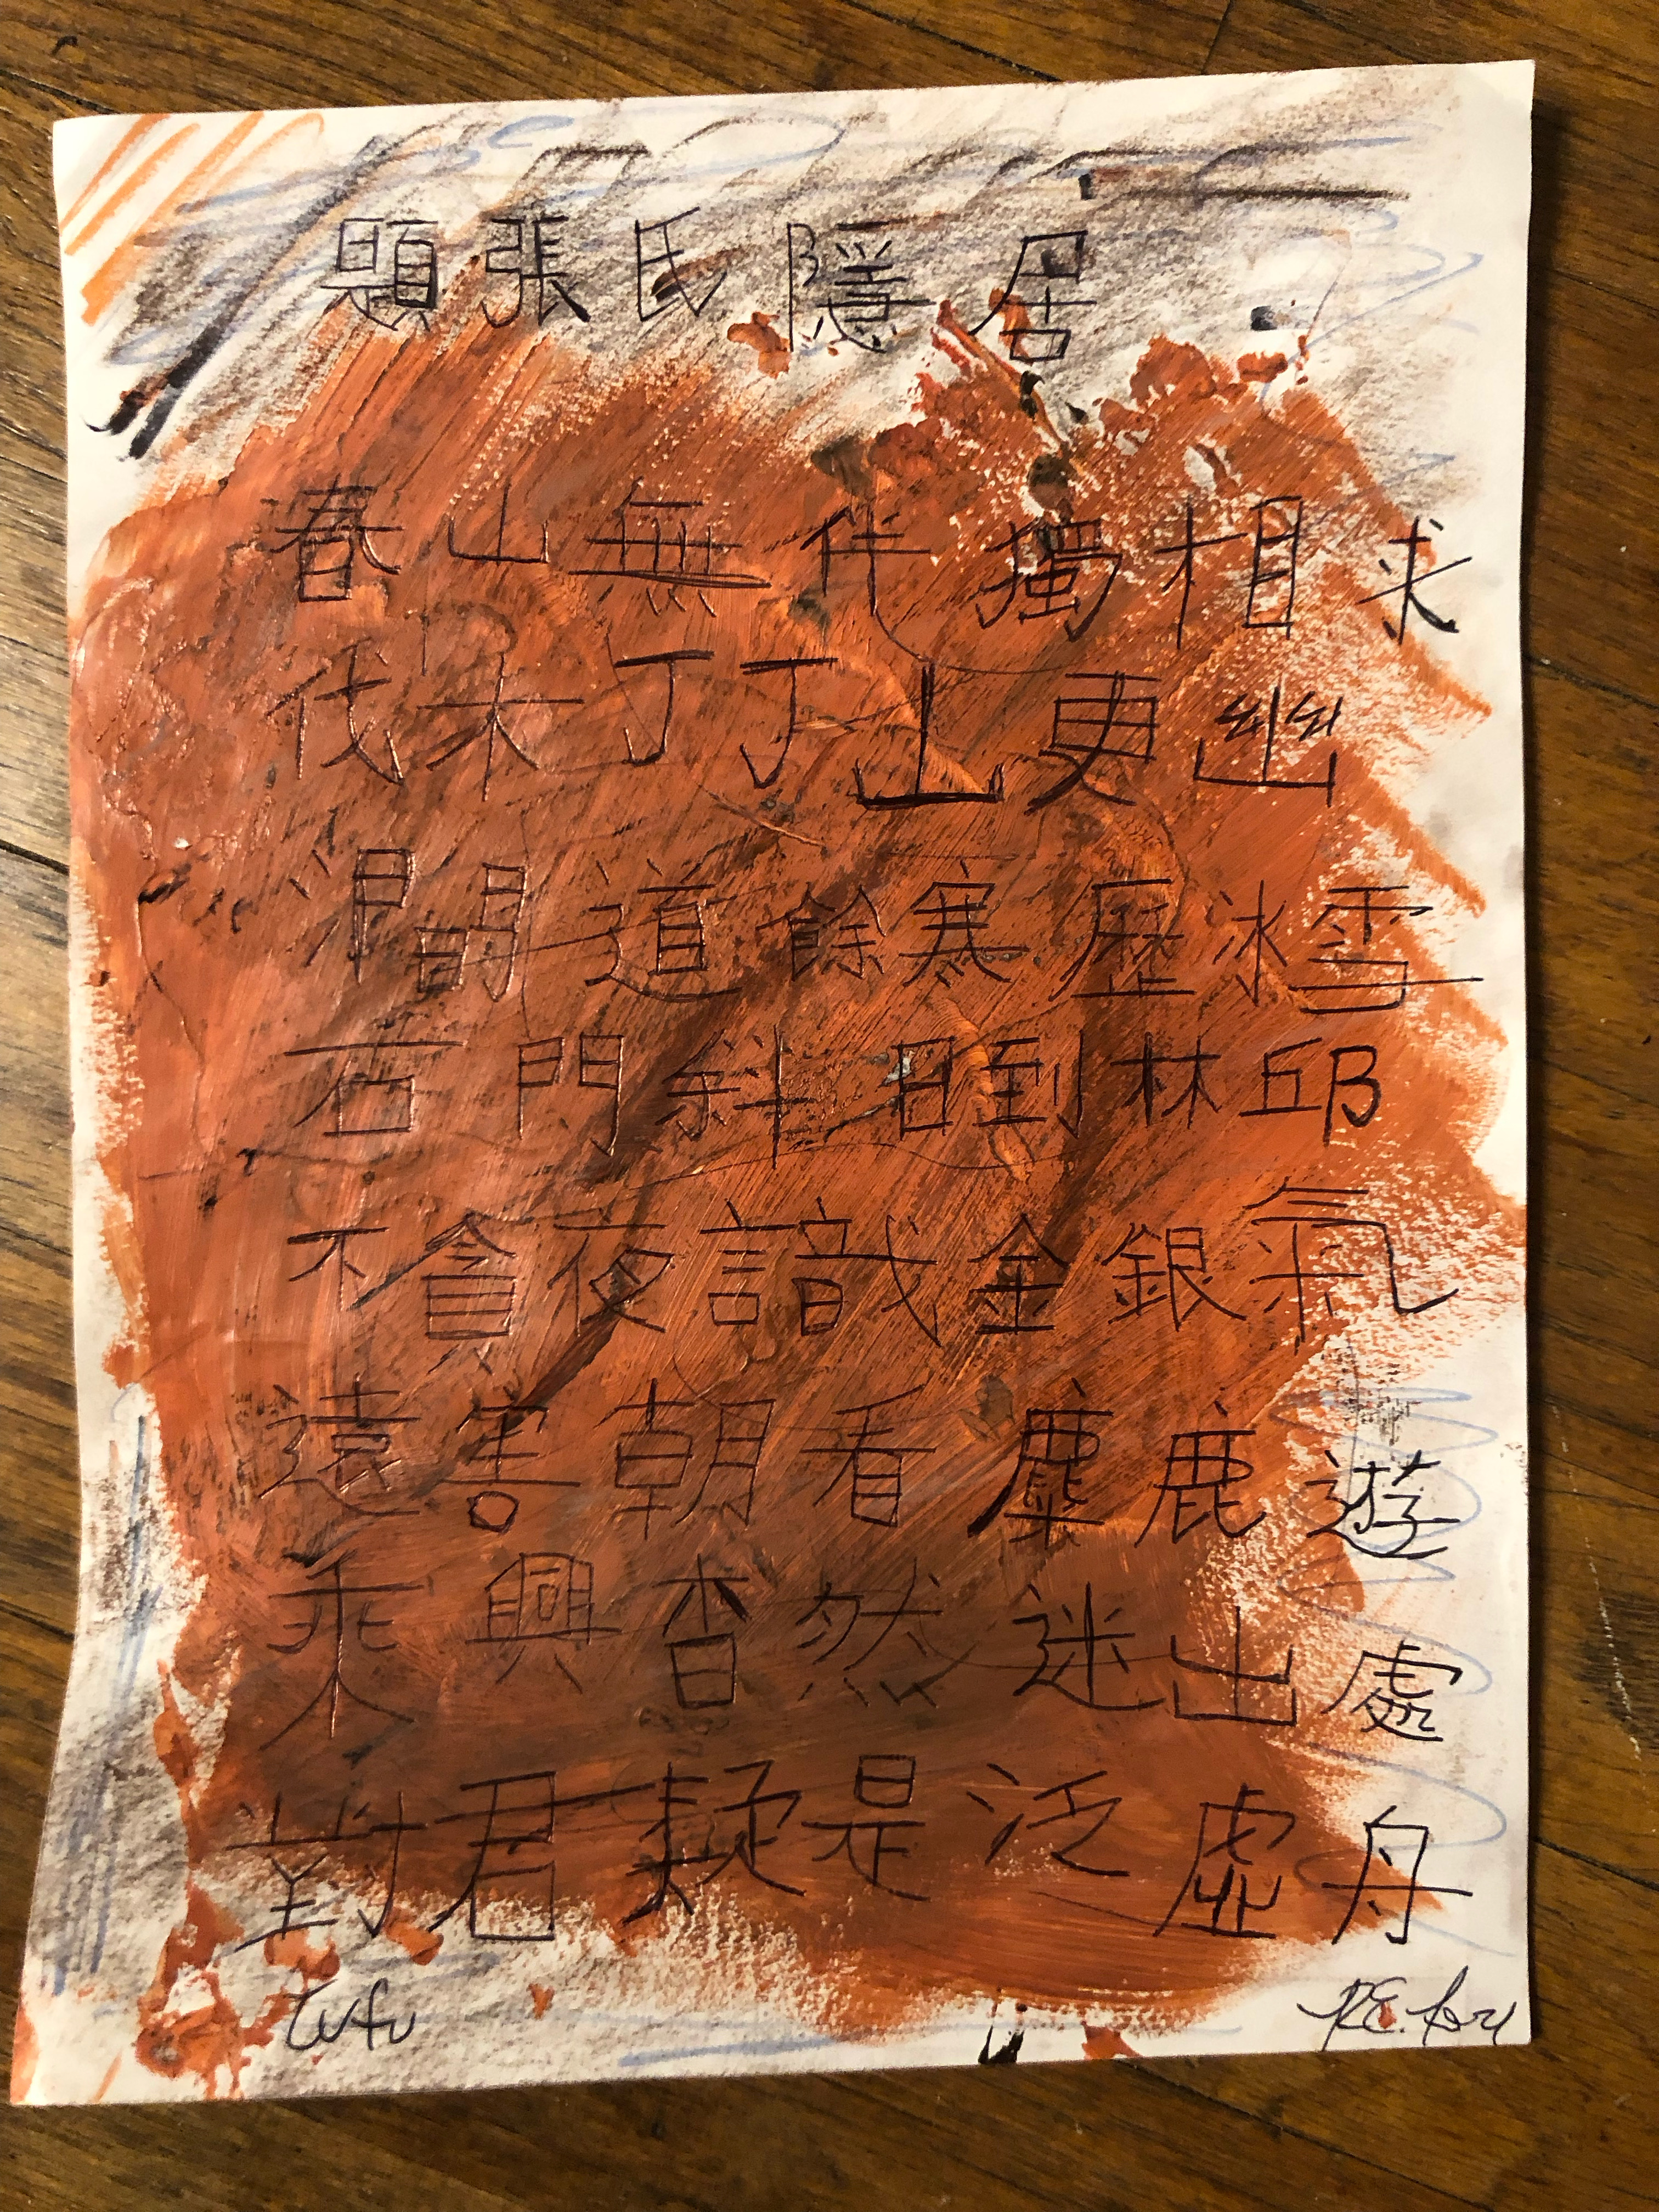 題張氏隱居
春山無伴獨相求
伐木丁丁山更幽
澗道餘寒歷冰雪
石門斜日到林邱
不貪夜識金銀氣
遠害朝看麋鹿遊
乘興杳然迷出處
對君疑是泛虛舟
Tu fu